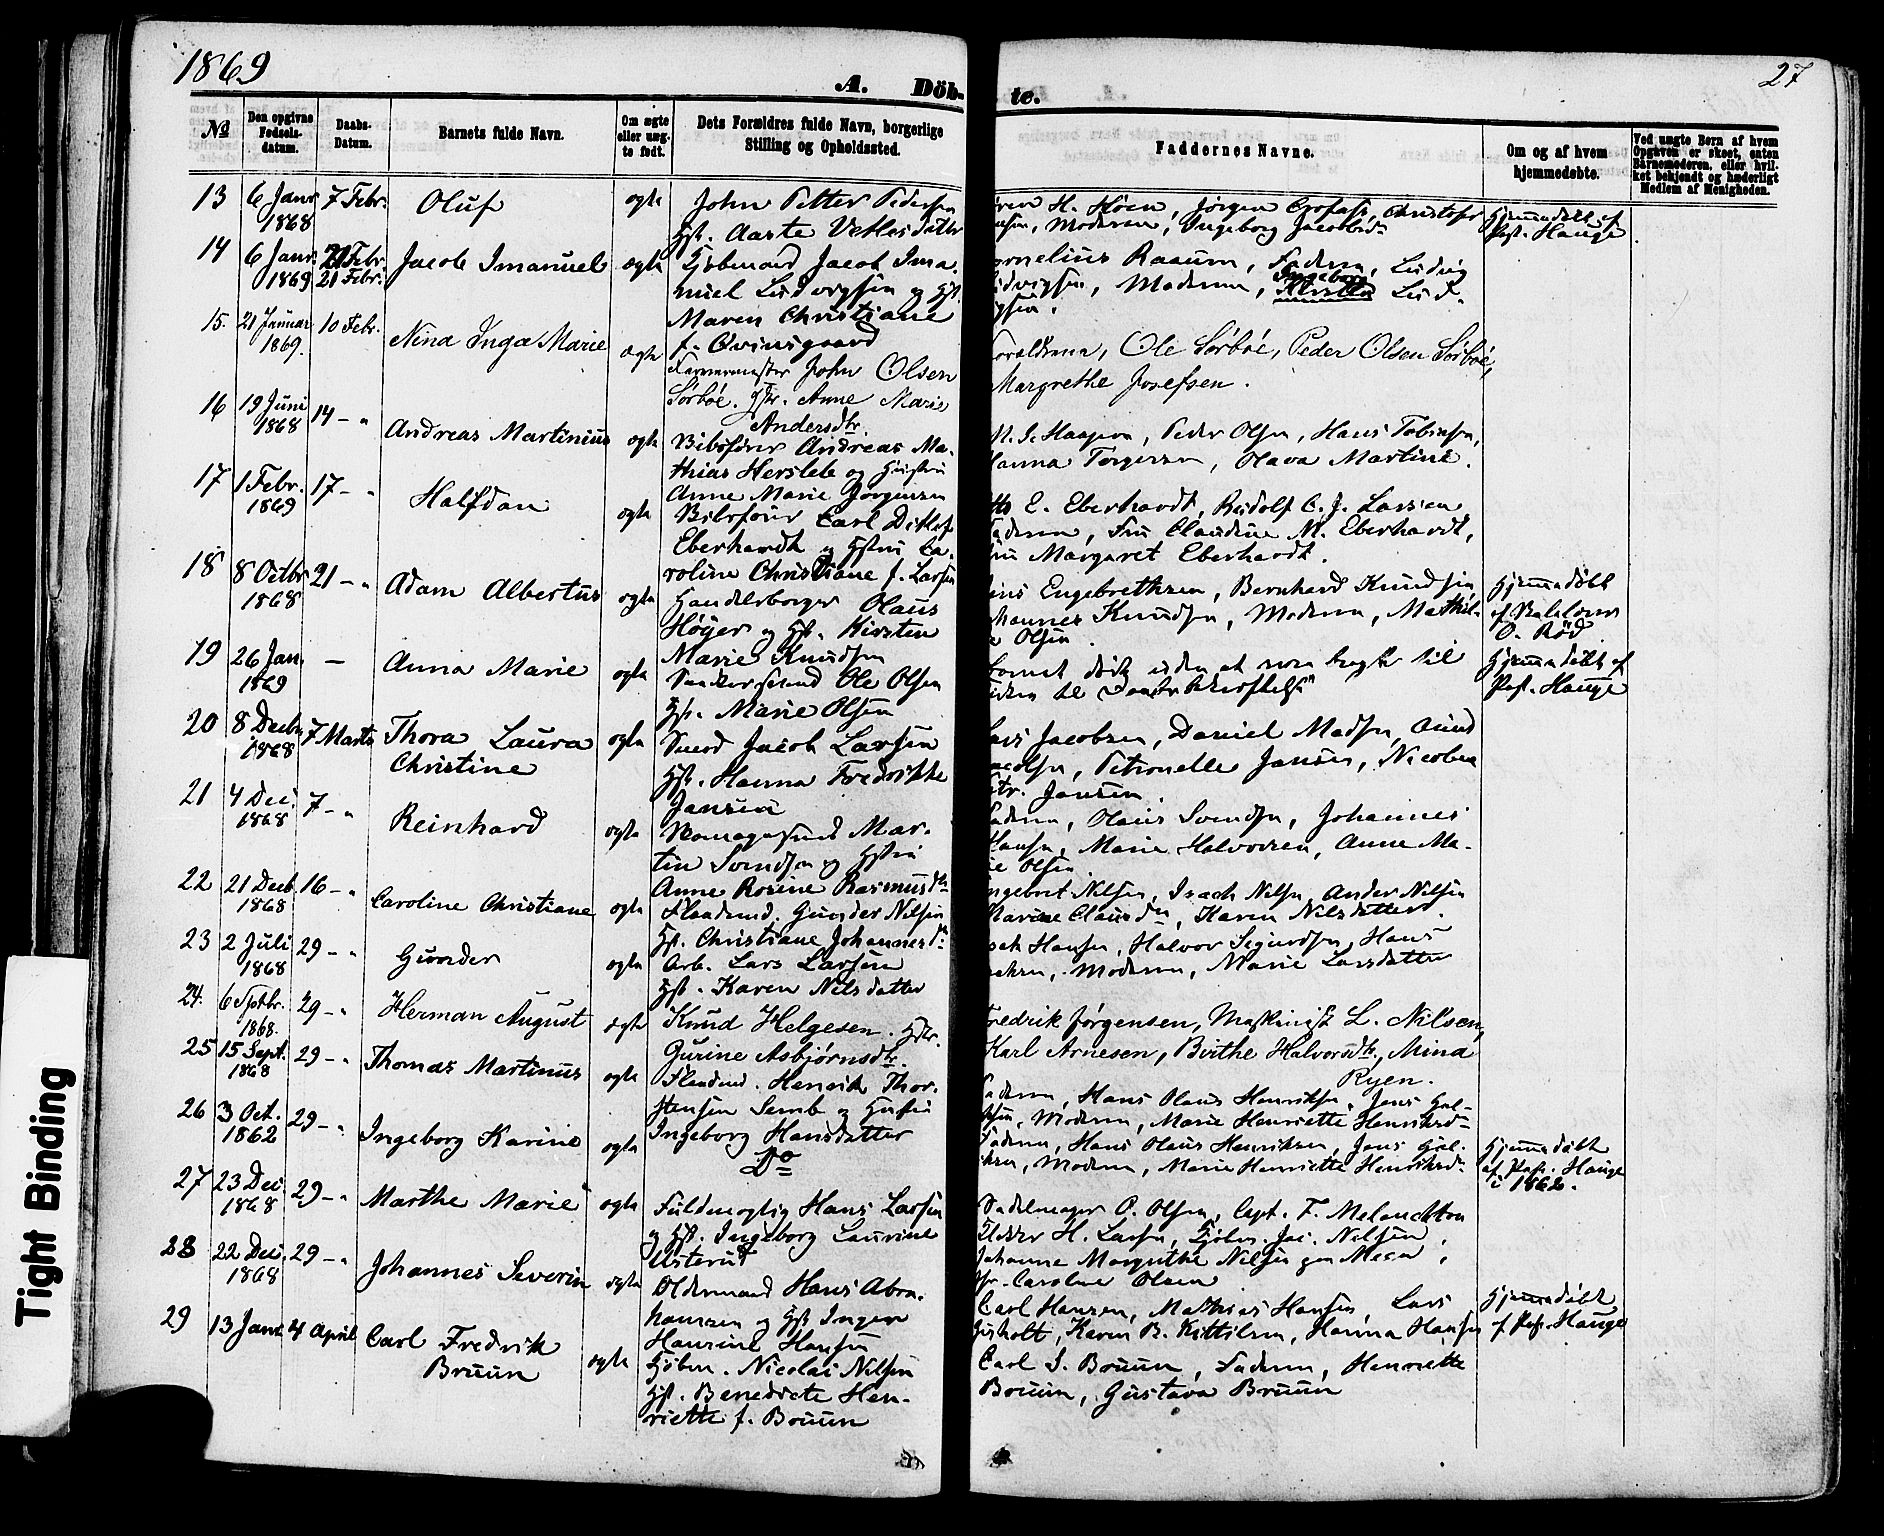 1869
27
A. Döb-
te.
№
Den opgivne Fødsels-datum.
Daabs-Datum.
Barnets fulde Navn.
Om ægte eller uæg-te født.
Dets Forældres fulde Navn, borgerlige Stilling og Opholdssted.
Faddernes Navne.
Om og af hvem hjemmedøbte.
Ved uægte Børn af hvem Opgaven er skeet, enten Barnemoderen, eller hvil-ket bekjendt og hæderligt Medlem af Menigheden.
13 6 Janr 1868 7 Febr. Oluf ægte John Petter Pedersen
Hst. Aaste Vetlesdatter
H. Höen, Jørgen Christofer
Moderen, Ingeborg Jacobsdr
Hjemmedøbt af
Past. Hauge
14 6 Janr. 1869 21 Febr. 21 Febr. Jacob Imanuel ægte Kjøbmand Jacob Ima-
nuel Ludvigsen og Hst.
Maren Christiane
f. Qvinsgaard
ornelius Raaum, Faderen, Ludvig
udvigsen, Moderen, Ingeborg Lud-
gsen.
15. 21 Januar 1869. 10 Febr. Nina Inga Marie ægte
Farvermester John Olsen
Sörböe. Hstr. Anne Marie
Andersdtr.
oreldrene, Ole Sörböe, Peder Olsen Sörböe,
Margrethe Josefsen.
16 19 Juni 1868 14 - " Andreas Martinius ægte Bødsfører Andreas Ma-
thias Hersleb og Hustru
Anne Marie Jørgensen
Peder Olsen, Hans Tobiasen,
Hanna Torgersen, Olava Martine.
17 1 Febr. 1869 17 - " Halfdan ægte Carl Ditlef
Eberhardt og Hstru Ca-
roline Christiane f. Larsen
E. Eberhardt, Rudolf C. J. Larsen
Faderen, Fru Claudine M. Eberhardt,
Fru Margaret Eberhardt.
18 8 Octbr 1868 21 - " Adam Albertus ægte Handelsborger Olaus
Höyer og Hst. Kirsten
Marie Knudsen
Engebrethsen, Bernhard Knudsen
hannes Knudsen, Moderen, Mathil-
e Olsen.
Hjemmedøbt
O. Röd
19 26 Jan. 1869 - Anna Marie ægte Ole Olsen
Hst. Marie Olsen
Barnet døde uden at være bragt til
Hjemmedøbt af
Past. Hauge
20 8 Decbr. 1868 7 Marts Thora Laura
Christine ægte Smed Jacob Larsen
Hst. Hanna Fredrikke
Jansen
Lars Jacobsen, Daniel Madsen,
Petronelle Jansen, Nicoline
Jansen.
21 4 Dec. 1868 7 - " Reinhard ægte Skomagersvend Mar-
tin Svendsen og Hstru
Anne Rosine Rasmusdtr
Faderen, Olaus Svendsen, Johannes
Hansen, Marie Halvorsen, Anne Ma-
rie Olsen
22 21 Decb. 1868 16 - " Caroline Christiane ægte Gunder Nilsen
Hst. Christiane Johannesdr
ngebret Nilsen, Isach Nilsen, Ander Nilsen
Karen Nilsdatter.
23 2 Juli 1868 29 - " Gunder ægte Arb. Lars Larsen
Hst. Karen Nilsdatter
sak Hansen, Halvor Sigurdsen, Hans
Moderen, Marie Larsdatter
24. 6 Septbr. 1868. 29 - " Herman August ægte Knud Helgesen. Hstr.
Gurine Asbjørnsdtr.
Fredrik Jørgensen, Maskinist L. Nilsen,
Karl Arnesen, Birthe Halvorsdtr., Mina
Ryen.
25 15 Sept. 1868 29 - " Thomas Martinus ægte Henrik Thor-
stensen Semb og Hustru
Ingeborg Hansdatter
Faderen, Hans Olaus Henriksen, Jens
Moderen, Marie Henriette Henriksd-
26 3 Oct. 1862 29 - " Ingeborg Karine ægte Do
Faderen, Hans Olaus Henriksen, Jens
Moderen, Marie Henriette Henriksdr.
Hjemmedøbt
af Past. Hauge
i 1862.
27 23 Dec. 1868 29 - " Marthe Marie ægte Fuldmægtig Hans Larsen
og Hst. Ingeborg Laurine
Usterud
Sadelmager O. Olsen, Capt. F. Melanchton
H. Larsen, Kjøbm. Jac. Nilsen,
Johanne Margrethe Nilsen
Caroline Olsen
28 22 Dec. 1868 29 - " Johannes Severin ægte Oldermand Hans Abra-
hamsen og Hst Inger
Haurine Hansen
Carl Hansen, Mathias Hansen, Lars
Karen B. Kittilsen, Hanna Hansen
Hjemmedøbt
af Past. Hauge
29 13 Janr. 4 April Carl Fredrik
Bruun ægte Kjøbm. Nicolai Nilsen
Hst. Benedicte Hen-
riette f. Bruun
Carl S. Bruun, Faderen, Henriette
Bruun, Gustava Bruun
Tight Binding